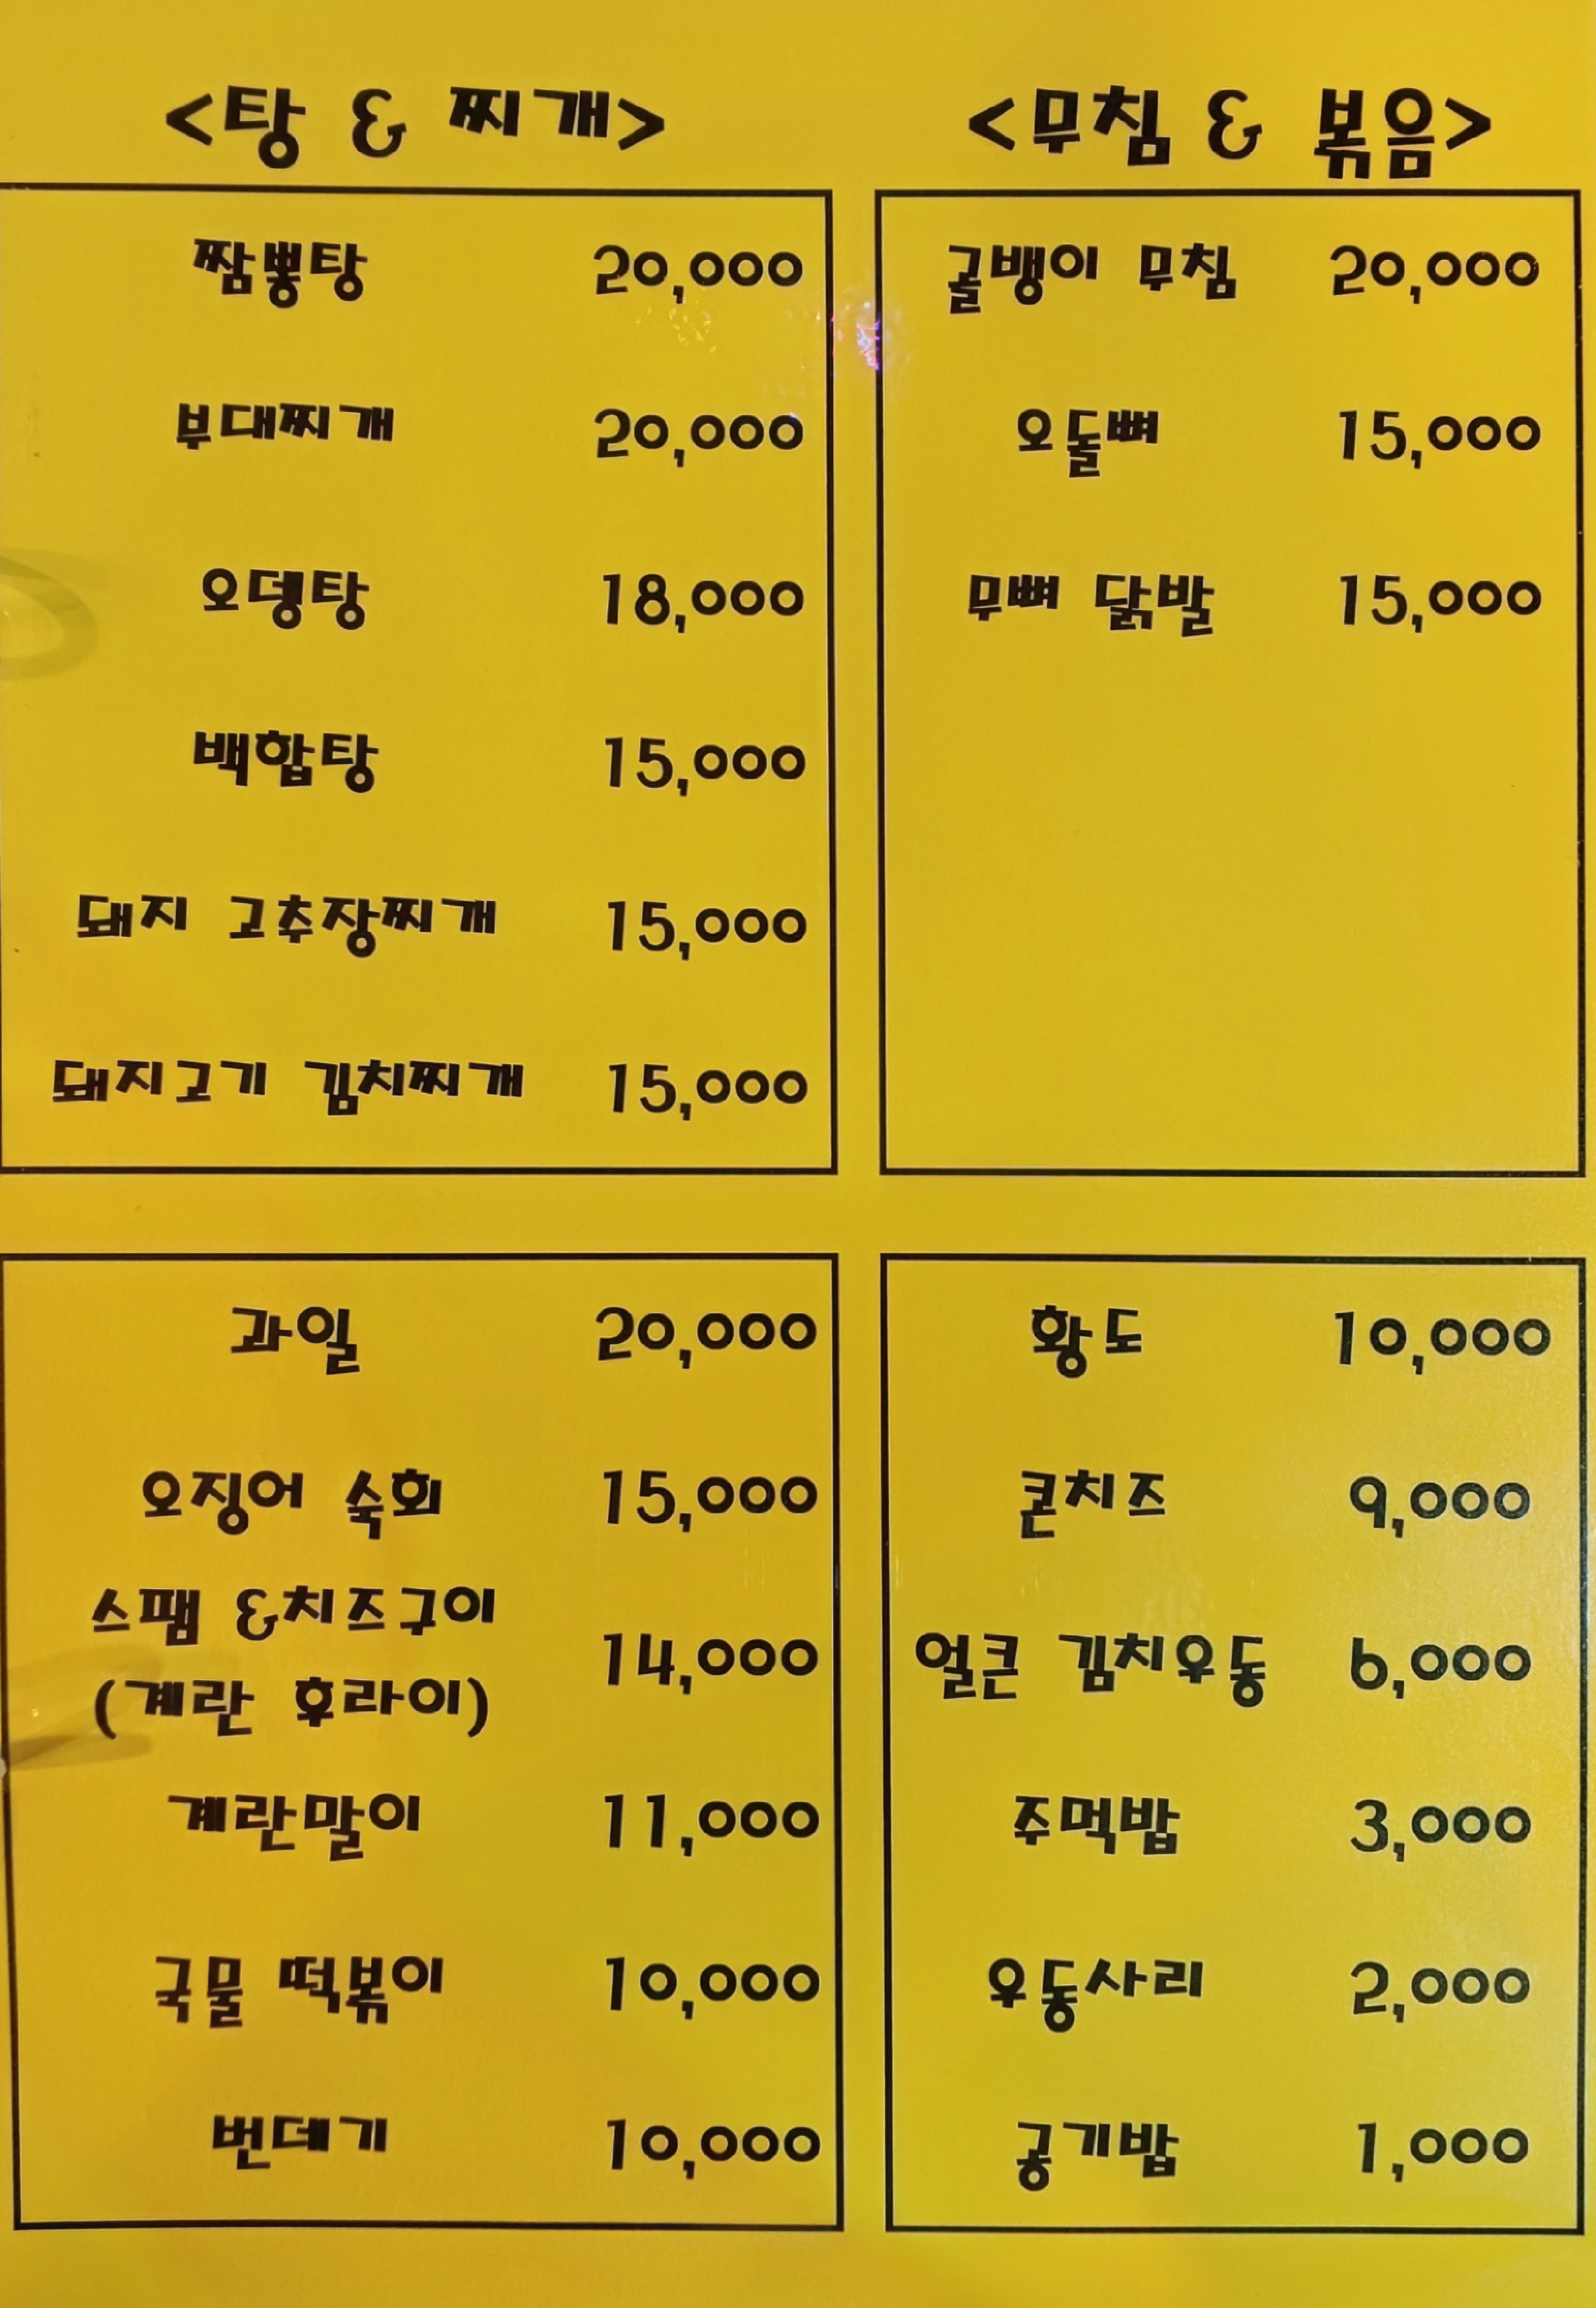 <탕 & 찌개>
짬뽕탕 20,000
부대찌개 20,000
오뎅탕 18,000
백합탕 15,000
돼지 고추장찌개 15,000
돼지고기 김치찌개 15,000
<무침 & 볶음>
골뱅이 무침 20,000
오돌뼈 15,000
무뼈 닭발 15,000
과일 20,000
오징어 숙회 15,000
스팸 &치즈구이
(계란 후라이) 14,000
계란말이 11,000
국물 떡볶이 10,000
번데기 10,000
황도 10,000
콘치즈 9,000
얼큰 김치우동 6,000
주먹밥 3,000
우동사리 2,000
공기밥 1,000